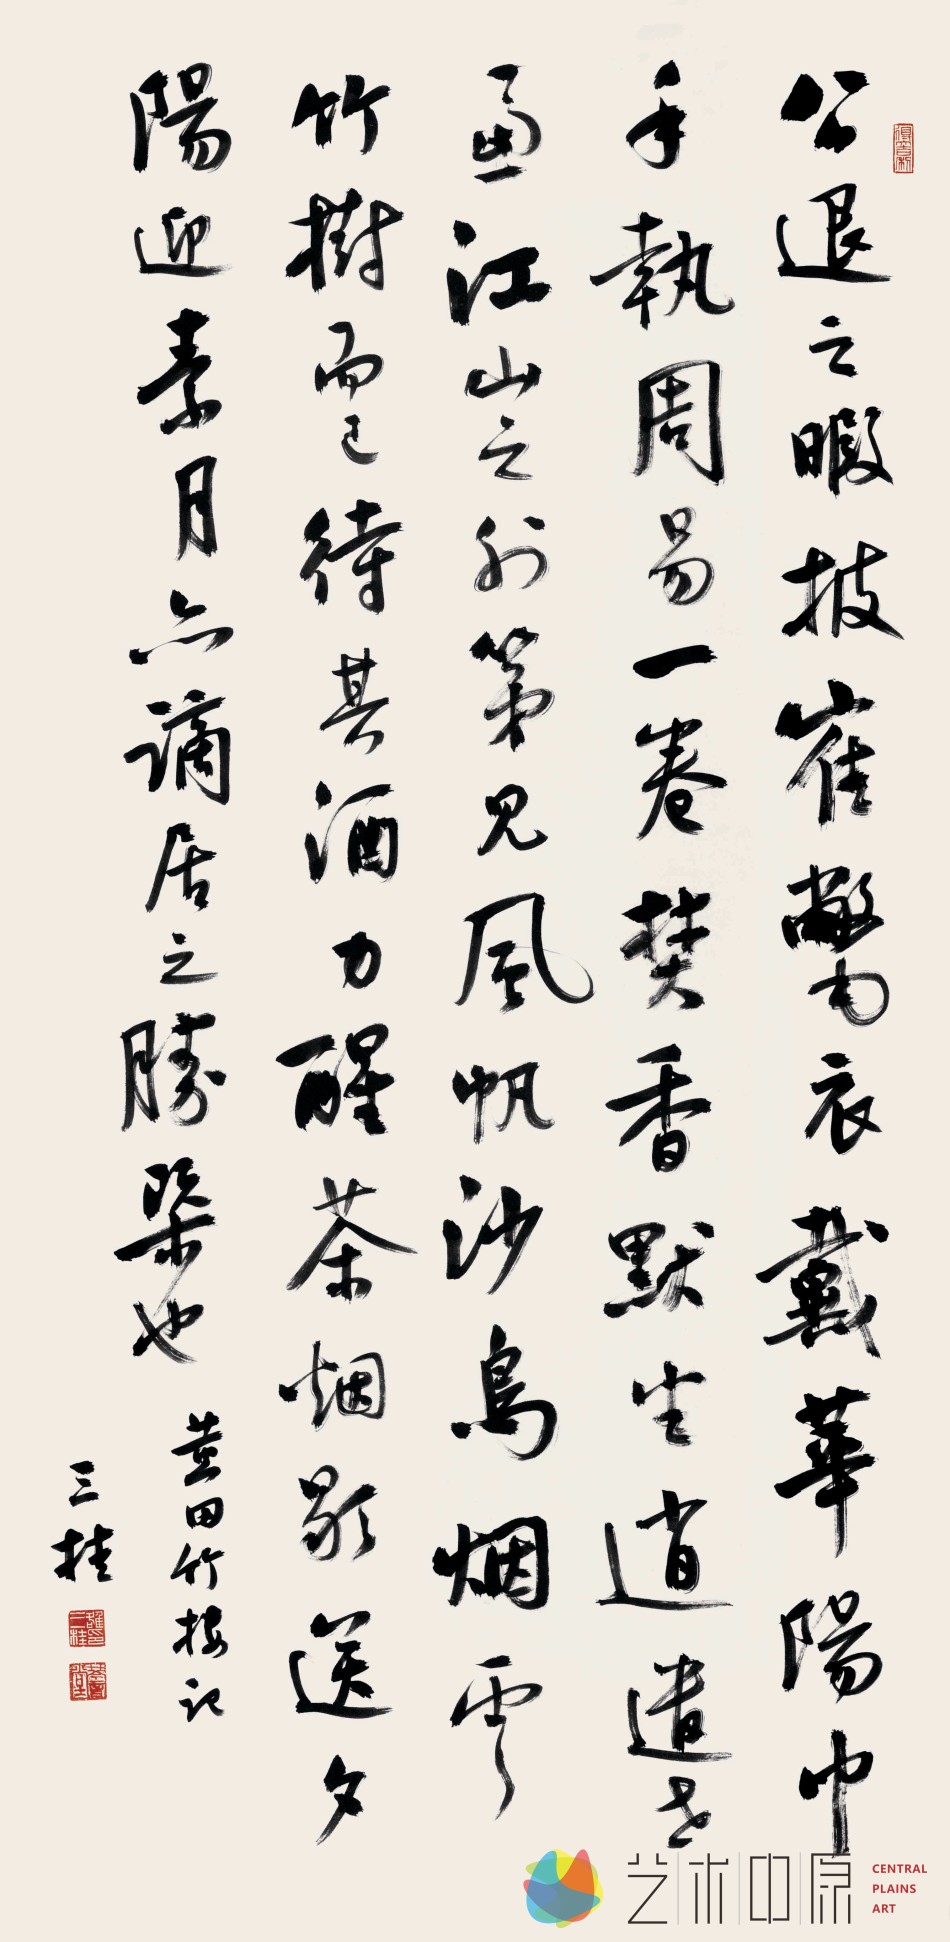 公退之暇披崔氅衣戴華陽巾
手執周易一卷焚香默坐逍遣世
慮江山之外第見風帆沙鳥烟雲
竹樹而已待其酒力醒茶烟歇送夕
陽迎素月亦謫居之勝槩也
黄田竹楼记
三桂
艺术中原
CENTRAL
PLAINS
ART